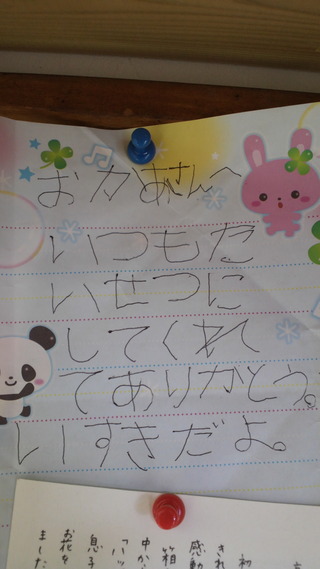 おかあさんへ
いつもた
いせつに
してくれて
てありがとう。
いすきだよ。
初
きれ
感動
箱
中か
息子
お花を
ました